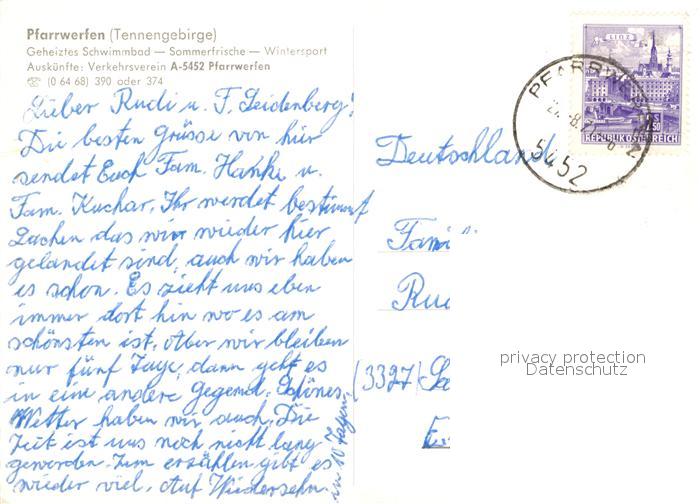 Pfarrwerfen (Tennengebirge)
Geheiztes Schwimmbad — Sommerfrische — Wintersport
Auskünfte: Verkehrsverein A-5452 Pfarrwerfen
☎ (0 64 68) 390 oder 374
Lieber Rudi u. F. Seidenberg!
Die besten Grüsse von hier
sendet Euch Fam. Hanke u.
Fam. Kuchar, Ihr werdet bestimmt
Lachen das wir wieder hier
gelandet sind, auch wir haben
es schon. Es zieht uns eben
immer dort hin wo es am
schönsten ist, Aber wir bleiben
nur fünf Tage, dann geht es
in eine andere Gegend. Schönes
Wetter haben wir auch. Die
Zeit ist uns noch nicht lang
geworden. Zum erzählen gibt es
wieder viel. Auf Wiedersehn.
in 10 Tagen.
LINZ
S 1.50
REPUBLIK ÖSTERREICH
PFARRWERFEN
5452
Deutschland
Fami
Rud
(3327) Sa
privacy protection
Datenschutz